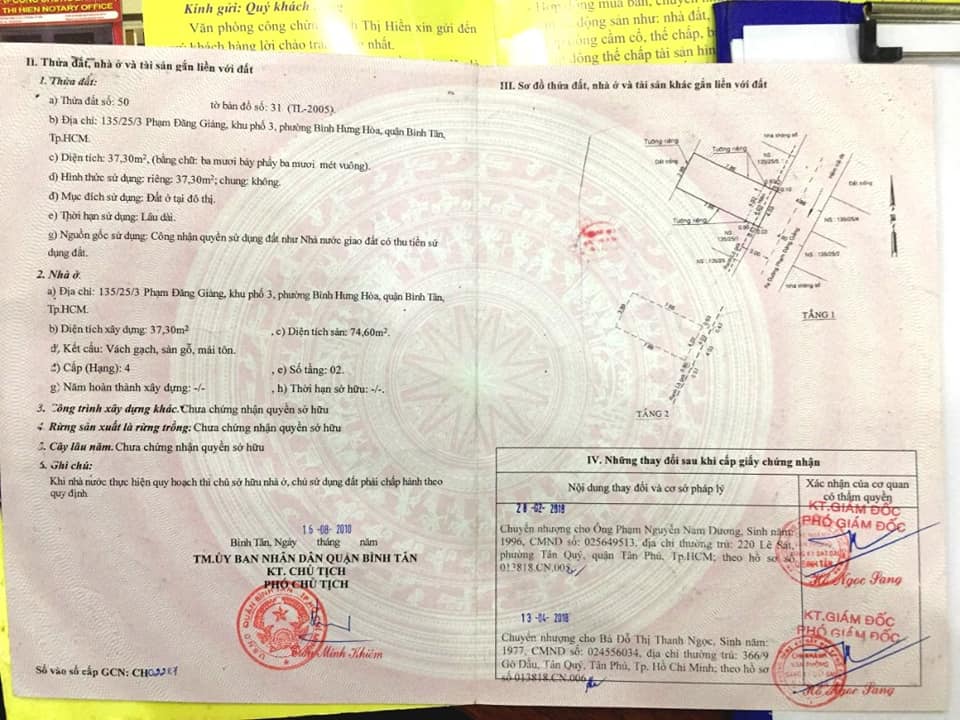 THI HIEN NOTARY OFFICE
Kính gửi: Quý khách
Văn phòng công chứng Thị Hiền xin gửi đến
khách hàng lời chào nhất.
mua bán, chuyển
động sản như: nhà đất,
cầm cố, thế chấp, b
đồng thế chấp tài sản hìn
II. Thửa đất, nhà ở và tài sản gắn liền với đất
1. Thửa đất:
a) Thửa đất số: 50 tờ bản đồ số: 31 (TL-2005).
b) Địa chỉ: 135/25/3 Phạm Đăng Giảng, khu phố 3, phường Bình Hưng Hòa, quận Bình Tân,
Tp.HCM.
c) Diện tích: 37,30m², (bằng chữ: ba mươi bảy phẩy ba mươi mét vuông).
d) Hình thức sử dụng: riêng: 37,30m²; chung: không.
đ) Mục đích sử dụng: Đất ở tại đô thị.
e) Thời hạn sử dụng: Lâu dài.
g) Nguồn gốc sử dụng: Công nhận quyền sử dụng đất như Nhà nước giao đất có thu tiền sử
dụng đất.
2. Nhà ở.
a) Địa chỉ: 135/25/3 Phạm Đăng Giảng, khu phố 3, phường Bình Hưng Hòa, quận Bình Tân,
Tp.HCM.
b) Diện tích xây dựng: 37,30m² , c) Diện tích sàn: 74,60m².
d) Kết cấu: Vách gạch, sàn gỗ, mái tôn.
đ) Cấp (Hạng): 4 , e) Số tầng: 02.
g) Năm hoàn thành xây dựng: -/- , h) Thời hạn sở hữu: -/-.
3. Công trình xây dựng khác: Chưa chứng nhận quyền sở hữu
4. Rừng sản xuất là rừng trồng: Chưa chứng nhận quyền sở hữu
5. Cây lâu năm. Chưa chứng nhận quyền sở hữu
6. Ghi chú:
Khi nhà nước thực hiện quy hoạch thì chủ sở hữu nhà ở, chủ sử dụng đất phải chấp hành theo
quy định.
16 -08- 2010
Bình Tân, Ngày tháng năm
TM.ỦY BAN NHÂN DÂN QUẬN BÌNH TÂN
KT. CHỦ TỊCH
PHÓ CHỦ TỊCH
Minh Khiêm
Số vào sổ cấp GCN: CH
III. Sơ đồ thửa đất, nhà ở và tài sản khác gắn liền với đất
Nhà không số
Tường riêng
Tường riêng
Đất trống
NS
135/25/5
Đất trống
NS : 135/25/4
Tường riêng
NS
135/25/1
NS : 135/25/2
Ra Đường Phạm Đăng Giảng
Nhà không số
TẦNG 1
TẦNG 2
IV. Những thay đổi sau khi cấp giấy chứng nhận
Nội dung thay đổi và cơ sở pháp lý
Xác nhận của cơ quan
có thẩm quyền
28 -02- 2018
Chuyển nhượng cho Ông Phạm Nguyễn Nam Dương, Sinh năm:
1996, CMND số: 025649513, địa chỉ thường trú: 220 Lê Sát,
phường Tân Quý, quận Tân Phú, Tp.HCM; theo hồ sơ số
013818.CN.005
KT.GIÁM ĐỐC
PHÓ GIÁM ĐỐC
Hồ Ngọc Sang
13 -04- 2018
Chuyển nhượng cho Bà Đỗ Thị Thanh Ngọc, Sinh năm:
1977, CMND số: 024556034, địa chỉ thường trú: 366/9
Gò Dầu, Tân Quý, Tân Phú, Tp. Hồ Chí Minh; theo hồ sơ
số 013818.CN.006
KT.GIÁM ĐỐC
PHÓ GIÁM ĐỐC
Hồ Ngọc Sang